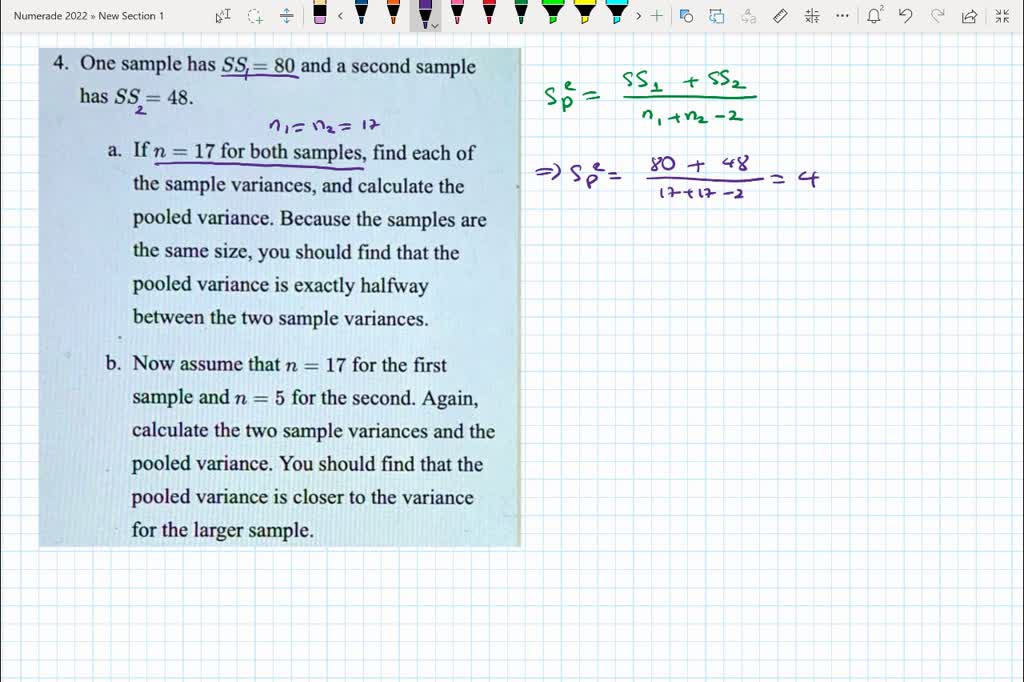 Numerade 2022 » New Section 1
4. One sample has SS₁ = 80 and a second sample
has SS₂ = 48.
n₁ = n₂ = 17
a. If n = 17 for both samples, find each of
the sample variances, and calculate the
pooled variance. Because the samples are
the same size, you should find that the
pooled variance is exactly halfway
between the two sample variances.
b. Now assume that n = 17 for the first
sample and n = 5 for the second. Again,
calculate the two sample variances and the
pooled variance. You should find that the
pooled variance is closer to the variance
for the larger sample.
Sp² = (SS₁ + SS₂) / (n₁ + n₂ - 2)
⇒ Sp² = (80 + 48) / (17 + 17 - 2) = 4